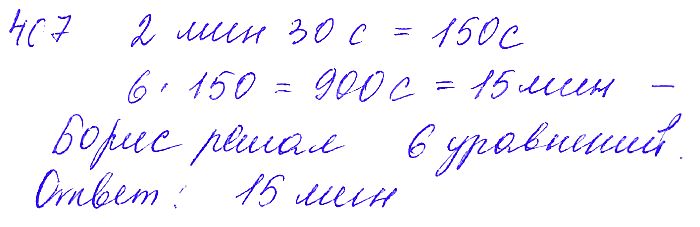 407 2 мин 30 с = 150с
6 · 150 = 900с = 15 мин –
Борис решал 6 уравнений.
Ответ: 15 мин